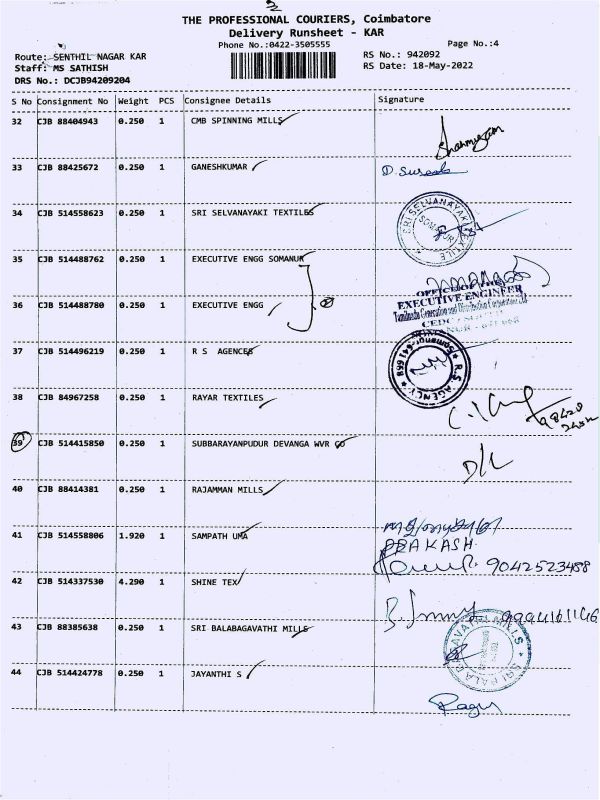 THE PROFESSIONAL COURIERS, Coimbatore
Delivery Runsheet - KAR
Phone No.:0422-3505555
Page No.:4
Route: SENTHIL NAGAR KAR
Staff: MS SATHISH
DRS No.: DCJB94209204
RS No.: 942092
RS Date: 18-May-2022
S No Consignment No Weight PCS Consignee Details Signature
32 CJB 88404943 0.250 1 CMB SPINNING MILLS
33 CJB 88425672 0.250 1 GANESHKUMAR D. Suresh
34 CJB 514558623 0.250 1 SRI SELVANAYAKI TEXTILES
SRI SELVANAYAKI TEXTILE
35 CJB 514488762 0.250 1 EXECUTIVE ENGG SOMANUR
EXECUTIVE ENGINEER
Tamilnadu Generation and Distribution Corporation Ltd
36 CJB 514488780 0.250 1 EXECUTIVE ENGG
37 CJB 514496219 0.250 1 R S AGENCES
R.S. AGENCY
Somanur-641 668
38 CJB 84967258 0.250 1 RAYAR TEXTILES
39 CJB 514415850 0.250 1 SUBBARAYANPUDUR DEVANGA WVR CO D/L
40 CJB 88414381 0.250 1 RAJAMMAN MILLS
41 CJB 514558806 1.920 1 SAMPATH UMA
PRAKASH.
9042523488
42 CJB 514337530 4.290 1 SHINE TEX
9994161146
43 CJB 88385638 0.250 1 SRI BALABAGAVATHI MILLS
44 CJB 514424778 0.250 1 JAYANTHI S
Ragu